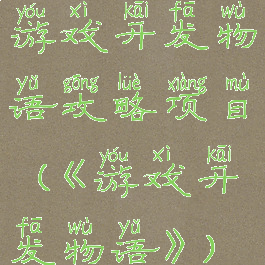 yóu xì kāi fā wù
游戏开发物
yǔ gōng lüè xiàng mù
语攻略项目
yóu xì kāi
(《游戏开
fā wù yǔ
发物语》)